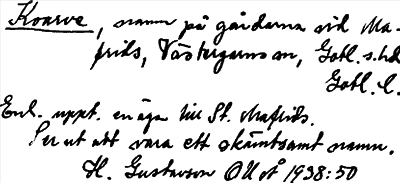 Koarve, namn på gårdarna vid Ma-
frids, Västergarns sn, Gotl. s. hd
Gotl. l.
Enl. uppt. en äga till St. Mafrids.
Ser ut att vara ett skämtsamt namn.
H. Gustavson OUÅ 1938:50